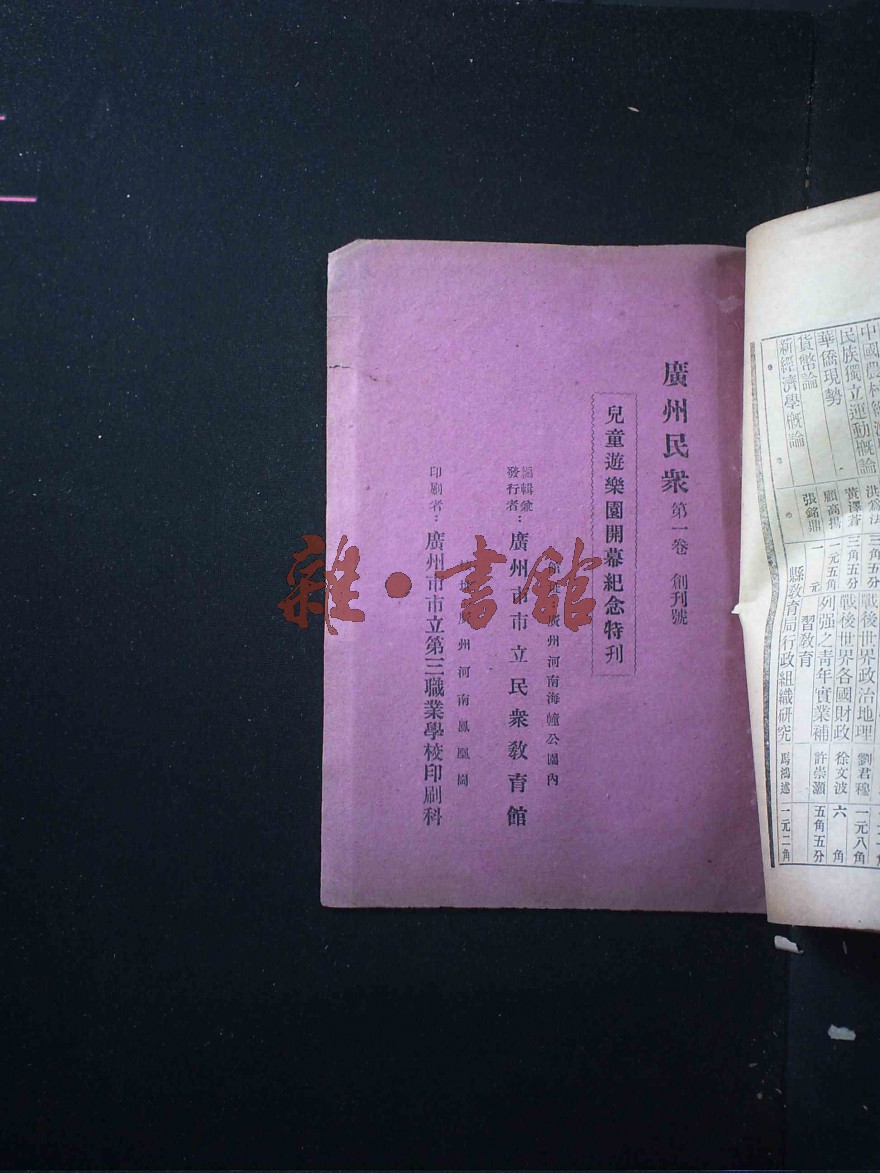 廣州民衆 第一卷 創刊號
兒童遊樂園開幕紀念特刊
廣州河南海幢公園內
編輯兼
發行者：廣州市市立民衆教育館
廣州河南鳳凰崗
印刷者：廣州市市立第三職業學校印刷科
雜·書館
民族獨立運動概論 黃澤蒼 三角五分
戰後世界各國財政 徐文波 六角
華僑現勢 顧高揚 一元五角
列强之青年實業補習教育 許崇灝 五角五分
貨幣論
新經濟學概論 張銘鼎 一元
縣教育局行政組織研究 馬鴻述 一元二角
戰後世界政治地理 劉君穆 一元八角